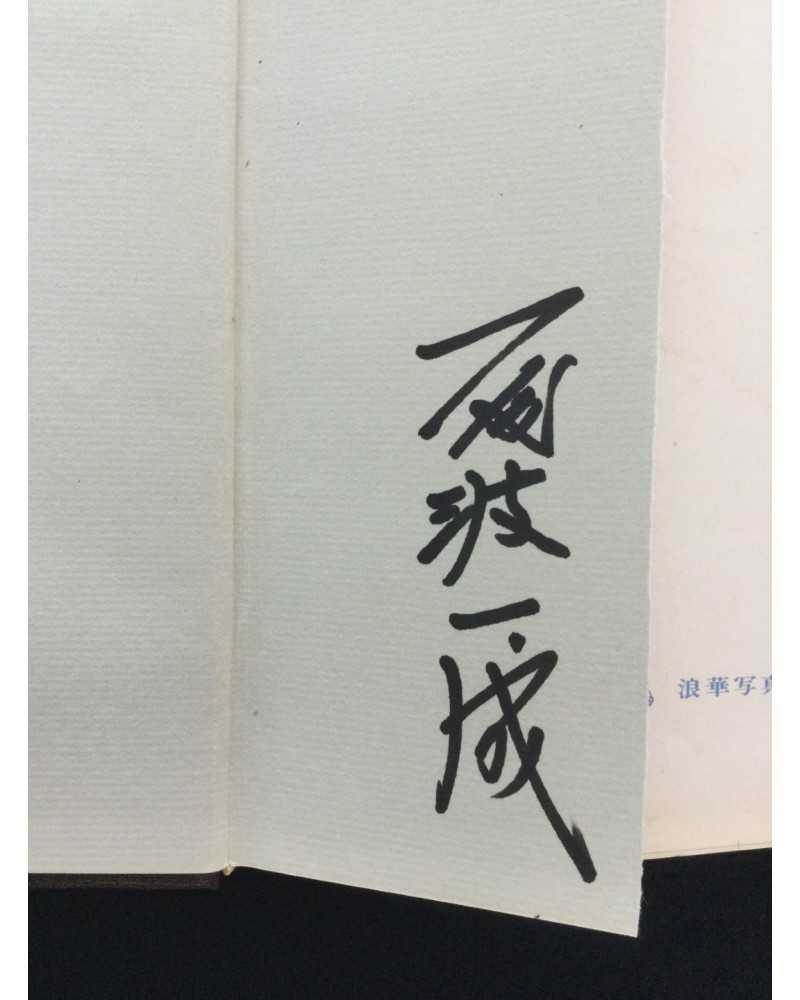 波一成
浪華写真